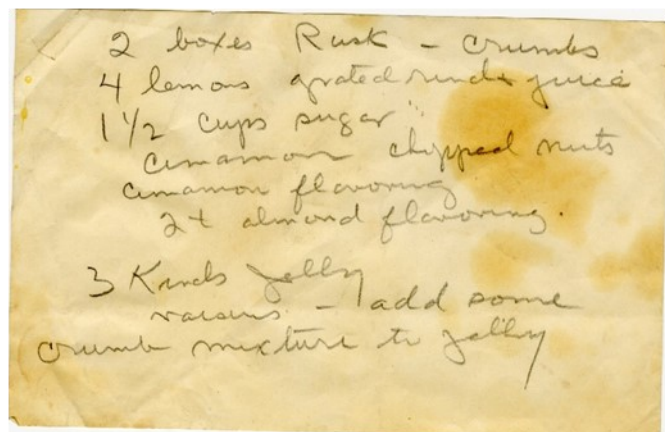 2 boxes Rusk - crumbs
4 lemons grated rind + juice
1 1/2 cups sugar
cinamon chopped nuts
cinamon flavoring
2 t almond flavoring.
3 Kinds Jelly
raisins - add some
crumb mixture to jelly